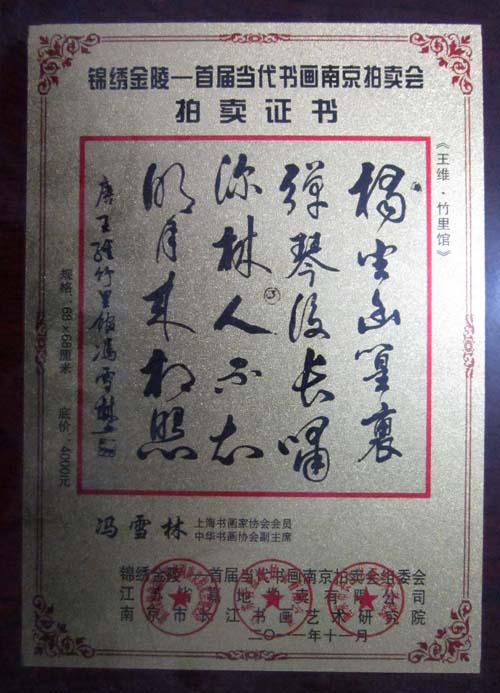 锦绣金陵—首届当代书画南京拍卖会
拍卖证书
《王维·竹里馆》
獨坐幽篁裏
彈琴復長嘯
深林人不知
明月来相照
唐王維竹里館馮雪林
规格:68×68厘米 底价:4000元
冯雪林
上海书画家协会会员
中华书画协会副主席
锦绣金陵—首届当代书画南京拍卖会组委会
江苏省 地拍卖有限公司
南京市长江书画艺术研究院
二〇一一年十一月